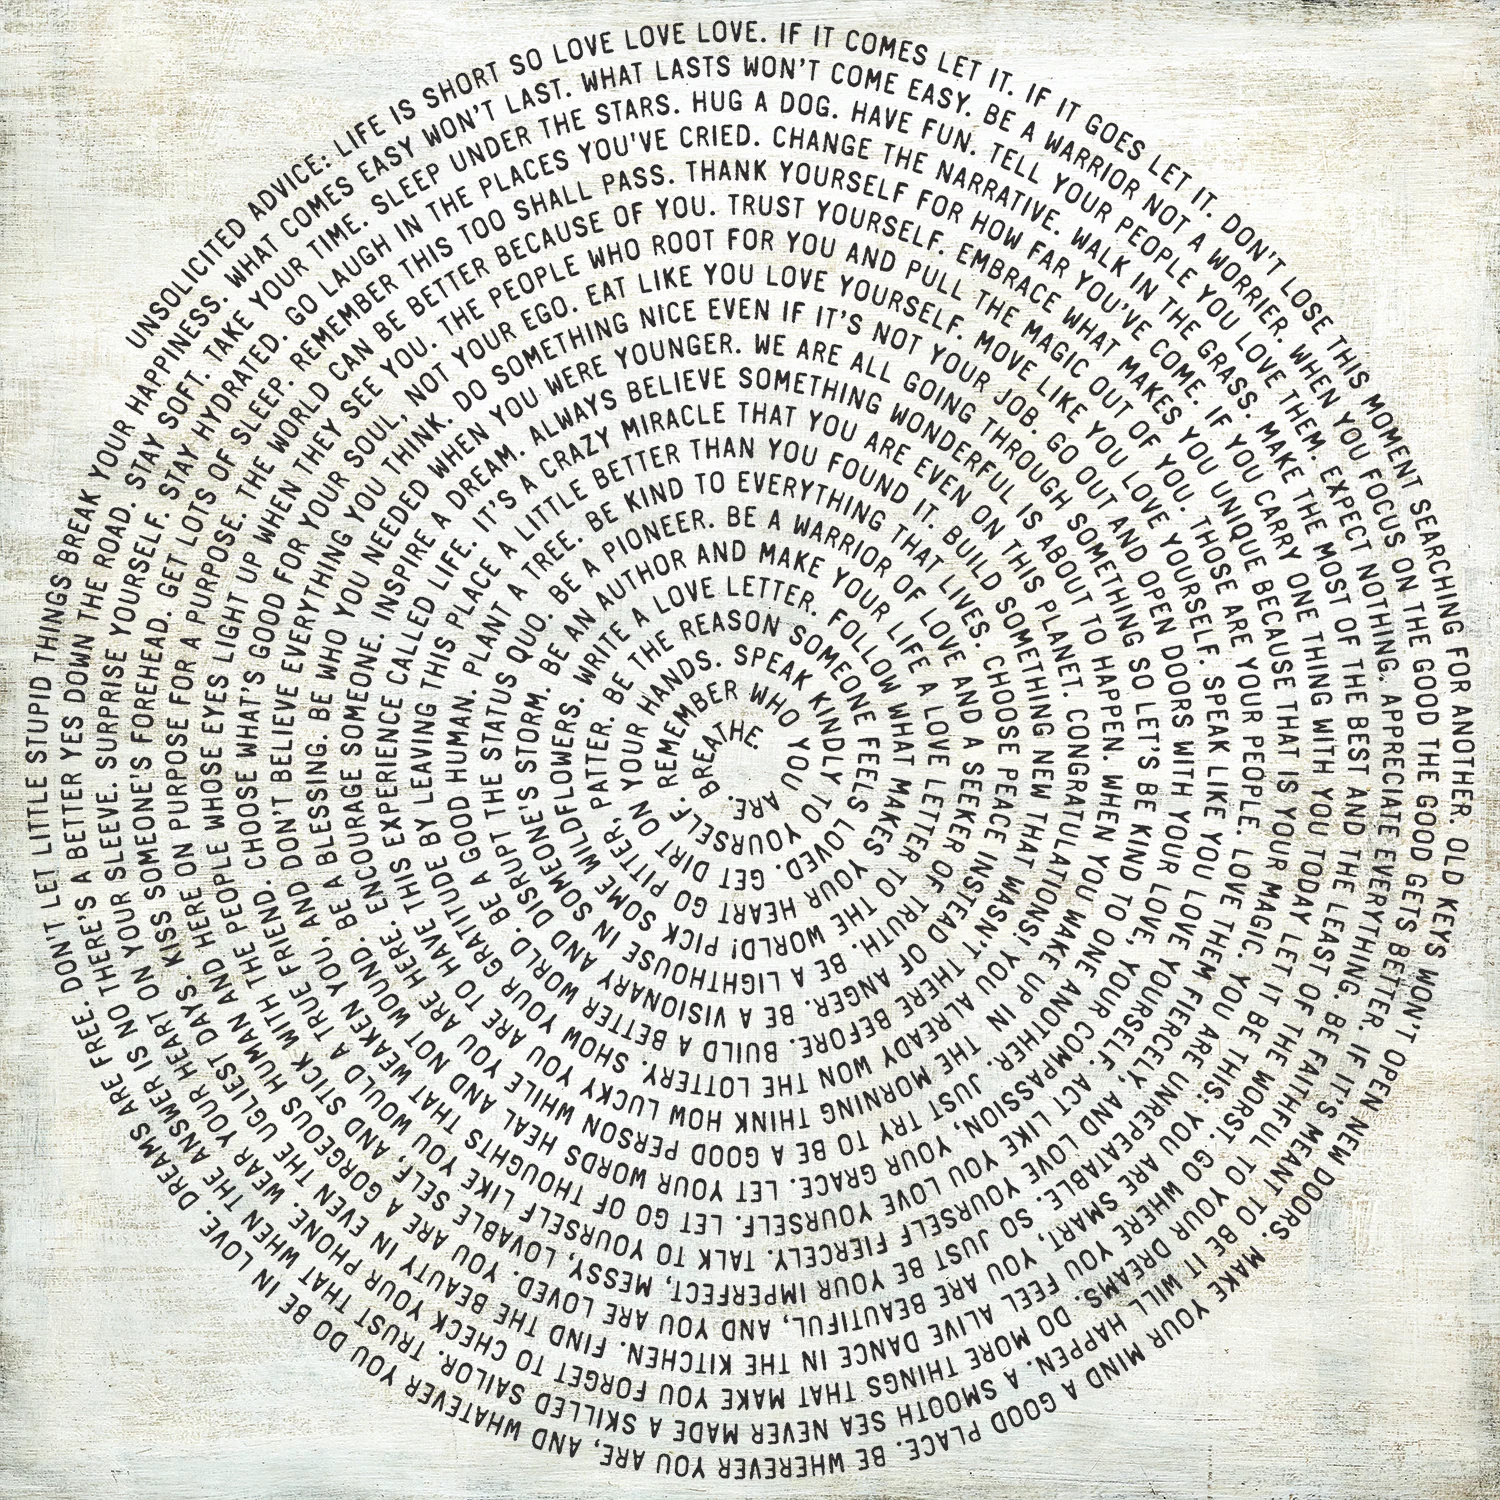 UNSOLICITED ADVICE: LIFE IS SHORT SO LOVE LOVE LOVE. IF IT COMES LET IT. IF IT GOES LET IT. DON'T LOSE THIS MOMENT SEARCHING FOR ANOTHER. OLD KEYS WON'T OPEN NEW DOORS. MAKE YOUR MIND A GOOD PLACE. BE WHEREVER YOU ARE, AND WHATEVER YOU DO BE IN LOVE. DREAMS ARE FREE. DON'T LET LITTLE STUPID THINGS BREAK YOUR HAPPINESS.
WHAT COMES EASY WON'T LAST. WHAT LASTS WON'T COME EASY. BE A WARRIOR NOT A WORRIER. WHEN YOU FOCUS ON THE GOOD THE GOOD GETS BETTER. IF IT'S MEANT TO BE IT WILL HAPPEN. A SMOOTH SEA NEVER MADE A SKILLED SAILOR. TRUST THAT WHEN THE ANSWER IS NO THERE'S A BETTER YES DOWN THE ROAD. STAY SOFT.
TAKE YOUR TIME. SLEEP UNDER THE STARS. HUG A DOG. HAVE FUN. TELL YOUR PEOPLE YOU LOVE THEM. EXPECT NOTHING. APPRECIATE EVERYTHING. BE FAITHFUL TO YOUR DREAMS. DO MORE THINGS THAT MAKE YOU FORGET TO CHECK YOUR PHONE. WEAR YOUR HEART ON YOUR SLEEVE. SURPRISE YOURSELF. STAY HYDRATED.
GO LAUGH IN THE PLACES YOU'VE CRIED. CHANGE THE NARRATIVE. WALK IN THE GRASS. MAKE THE MOST OF THE BEST AND THE LEAST OF THE WORST. GO WHERE YOU FEEL ALIVE. DANCE IN THE KITCHEN. FIND THE BEAUTY IN EVEN THE UGLIEST DAYS. KISS SOMEONE'S FOREHEAD. GET LOTS OF SLEEP.
REMEMBER THIS TOO SHALL PASS. THANK YOURSELF FOR HOW FAR YOU'VE COME. IF YOU CARRY ONE THING WITH YOU TODAY LET IT BE THIS: YOU ARE SMART, YOU ARE BEAUTIFUL, AND YOU ARE LOVED. YOU ARE A GORGEOUS HUMAN AND HERE ON PURPOSE FOR A PURPOSE.
THE WORLD CAN BE BETTER BECAUSE OF YOU. TRUST YOURSELF. EMBRACE WHAT MAKES YOU UNIQUE BECAUSE THAT IS YOUR MAGIC. YOU ARE UNREPEATABLE. SO JUST BE YOUR IMPERFECT, MESSY, LOVABLE SELF, AND STICK WITH THE PEOPLE WHOSE EYES LIGHT UP WHEN THEY SEE YOU.
THE PEOPLE WHO ROOT FOR YOU AND PULL THE MAGIC OUT OF YOU. THOSE ARE YOUR PEOPLE. LOVE THEM FIERCELY, AND LOVE YOURSELF FIERCELY. TALK TO YOURSELF LIKE YOU WOULD A TRUE FRIEND. CHOOSE WHAT'S GOOD FOR YOUR SOUL, NOT YOUR EGO.
EAT LIKE YOU LOVE YOURSELF. MOVE LIKE YOU LOVE YOURSELF. SPEAK LIKE YOU LOVE YOURSELF. ACT LIKE YOU LOVE YOURSELF. LET GO OF THOUGHTS THAT WEAKEN YOU, AND DON'T BELIEVE EVERYTHING YOU THINK.
DO SOMETHING NICE EVEN IF IT'S NOT YOUR JOB. GO OUT AND OPEN DOORS WITH YOUR LOVE, YOUR COMPASSION, YOUR GRACE. LET YOUR WORDS HEAL AND NOT WOUND. BE A BLESSING. BE WHO YOU NEEDED WHEN YOU WERE YOUNGER.
WE ARE ALL GOING THROUGH SOMETHING SO LET'S BE KIND TO ONE ANOTHER. JUST TRY TO BE A GOOD PERSON WHILE YOU ARE HERE. ENCOURAGE SOMEONE. INSPIRE A DREAM.
ALWAYS BELIEVE SOMETHING WONDERFUL IS ABOUT TO HAPPEN. WHEN YOU WAKE UP IN THE MORNING THINK HOW LUCKY YOU ARE TO HAVE THIS EXPERIENCE CALLED LIFE.
IT'S A CRAZY MIRACLE THAT YOU ARE EVEN ON THIS PLANET. CONGRATULATIONS! YOU ALREADY WON THE LOTTERY. SHOW YOUR GRATITUDE BY LEAVING THIS PLACE A LITTLE BETTER THAN YOU FOUND IT.
BUILD SOMETHING NEW THAT WASN'T THERE BEFORE. BUILD A BETTER WORLD. BE A GOOD HUMAN. PLANT A TREE.
BE KIND TO EVERYTHING THAT LIVES. CHOOSE PEACE INSTEAD OF ANGER. BE A VISIONARY AND DISRUPT THE STATUS QUO. BE A PIONEER.
BE A WARRIOR OF LOVE AND A SEEKER OF TRUTH. BE A LIGHTHOUSE IN SOMEONE'S STORM.
BE AN AUTHOR AND MAKE YOUR LIFE A LOVE LETTER TO THE WORLD! PICK SOME WILDFLOWERS.
WRITE A LOVE LETTER. FOLLOW WHAT MAKES YOUR HEART GO PITTER, PATTER.
BE THE REASON SOMEONE FEELS LOVED. GET DIRT ON YOUR HANDS.
SPEAK KINDLY TO YOURSELF.
REMEMBER WHO YOU ARE.
BREATHE.